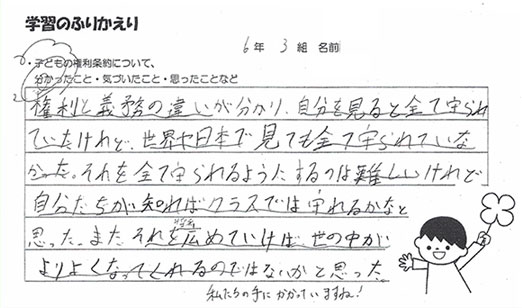 学習のふりかえり
6年 3組 名前
・子どもの権利条約について、
分かったこと・気づいたこと・思ったことなど
権利と義務の違いが分かり、自分を見ると全て守られ
ていたけれど、世界や日本で見ても全て守られていな
かった。それを全て守られるようにするのは難しいけれど
自分たちが知ればクラスでは守れるかなと
思った。また、それを広めていけば、世の中が
よりよくなってくれるのではないかと思った。
私たちの手にかかっていますね！